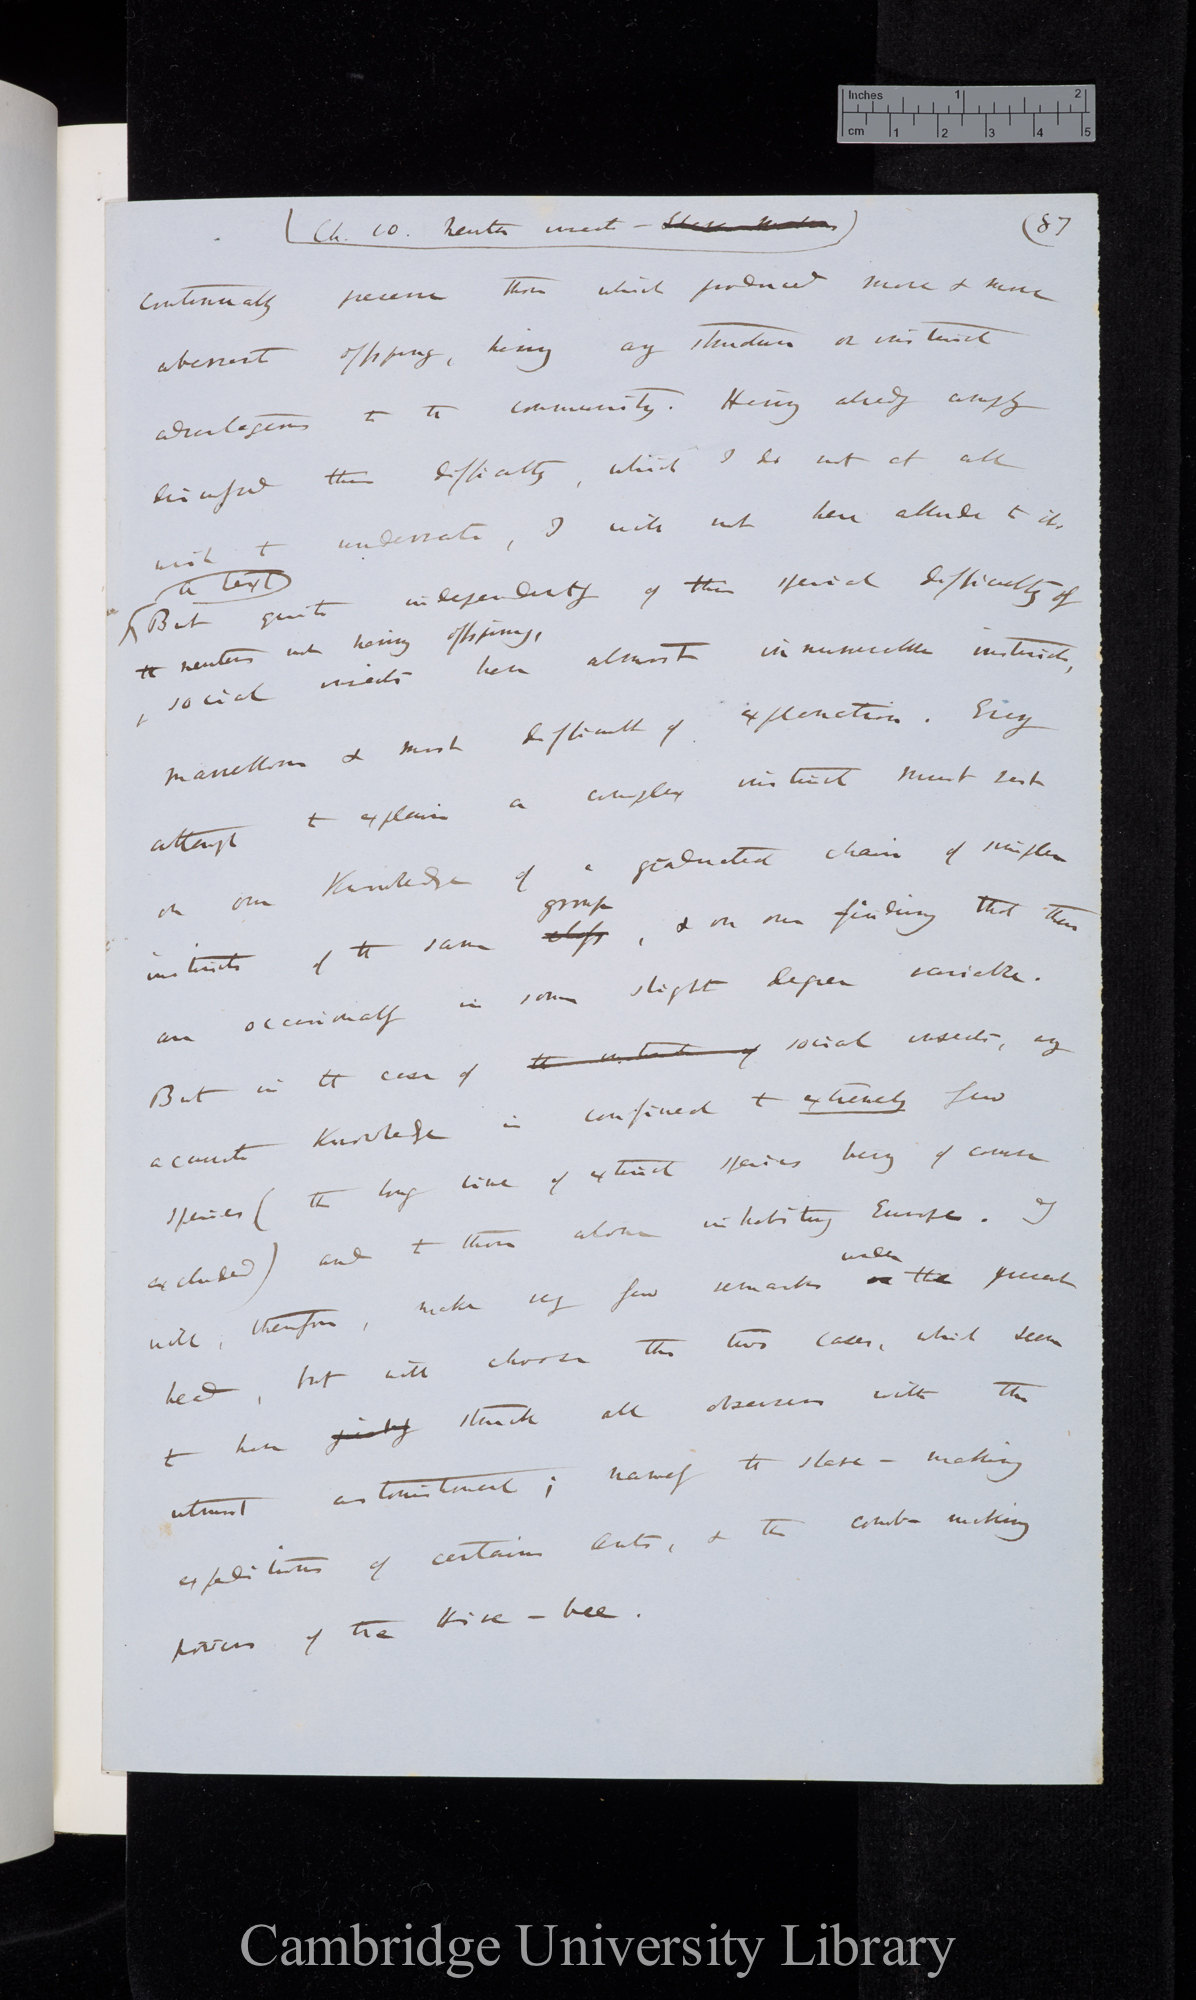 Inches 1 2
cm 1 2 3 4 5
(Ch. 10. Neuter insects — Slave-Makers)
(87
continually preserve those which produced more & more
aberrant offspring, having any structure or instinct
advantageous to the community. Having already amply
discussed this difficulty, which I do not at all
wish to underrate, I will not here allude to it.
(a text)
But quite independently of this special difficulty of
the neuters not having offspring,
social insects have almost innumerable instincts,
marvellous & most difficult of explanation. Every
attempt to explain a complex instinct must rest
on our knowledge of a graduated chain of simpler
group
instincts of the same class, & on our finding that these
are occasionally in some slight degree variable.
But in the case of the instincts of social insects, any
accurate knowledge is confined to extremely few
species (the long line of extinct species being of course
excluded) and to those alone inhabiting Europe. I
under
will, therefore, make very few remarks on the present
head, but will choose the two cases, which seem
to have justly struck all observers with the
utmost astonishment; namely the slave-making
expeditions of certain ants, & the comb-making
powers of the Hive-bee.
Cambridge University Library